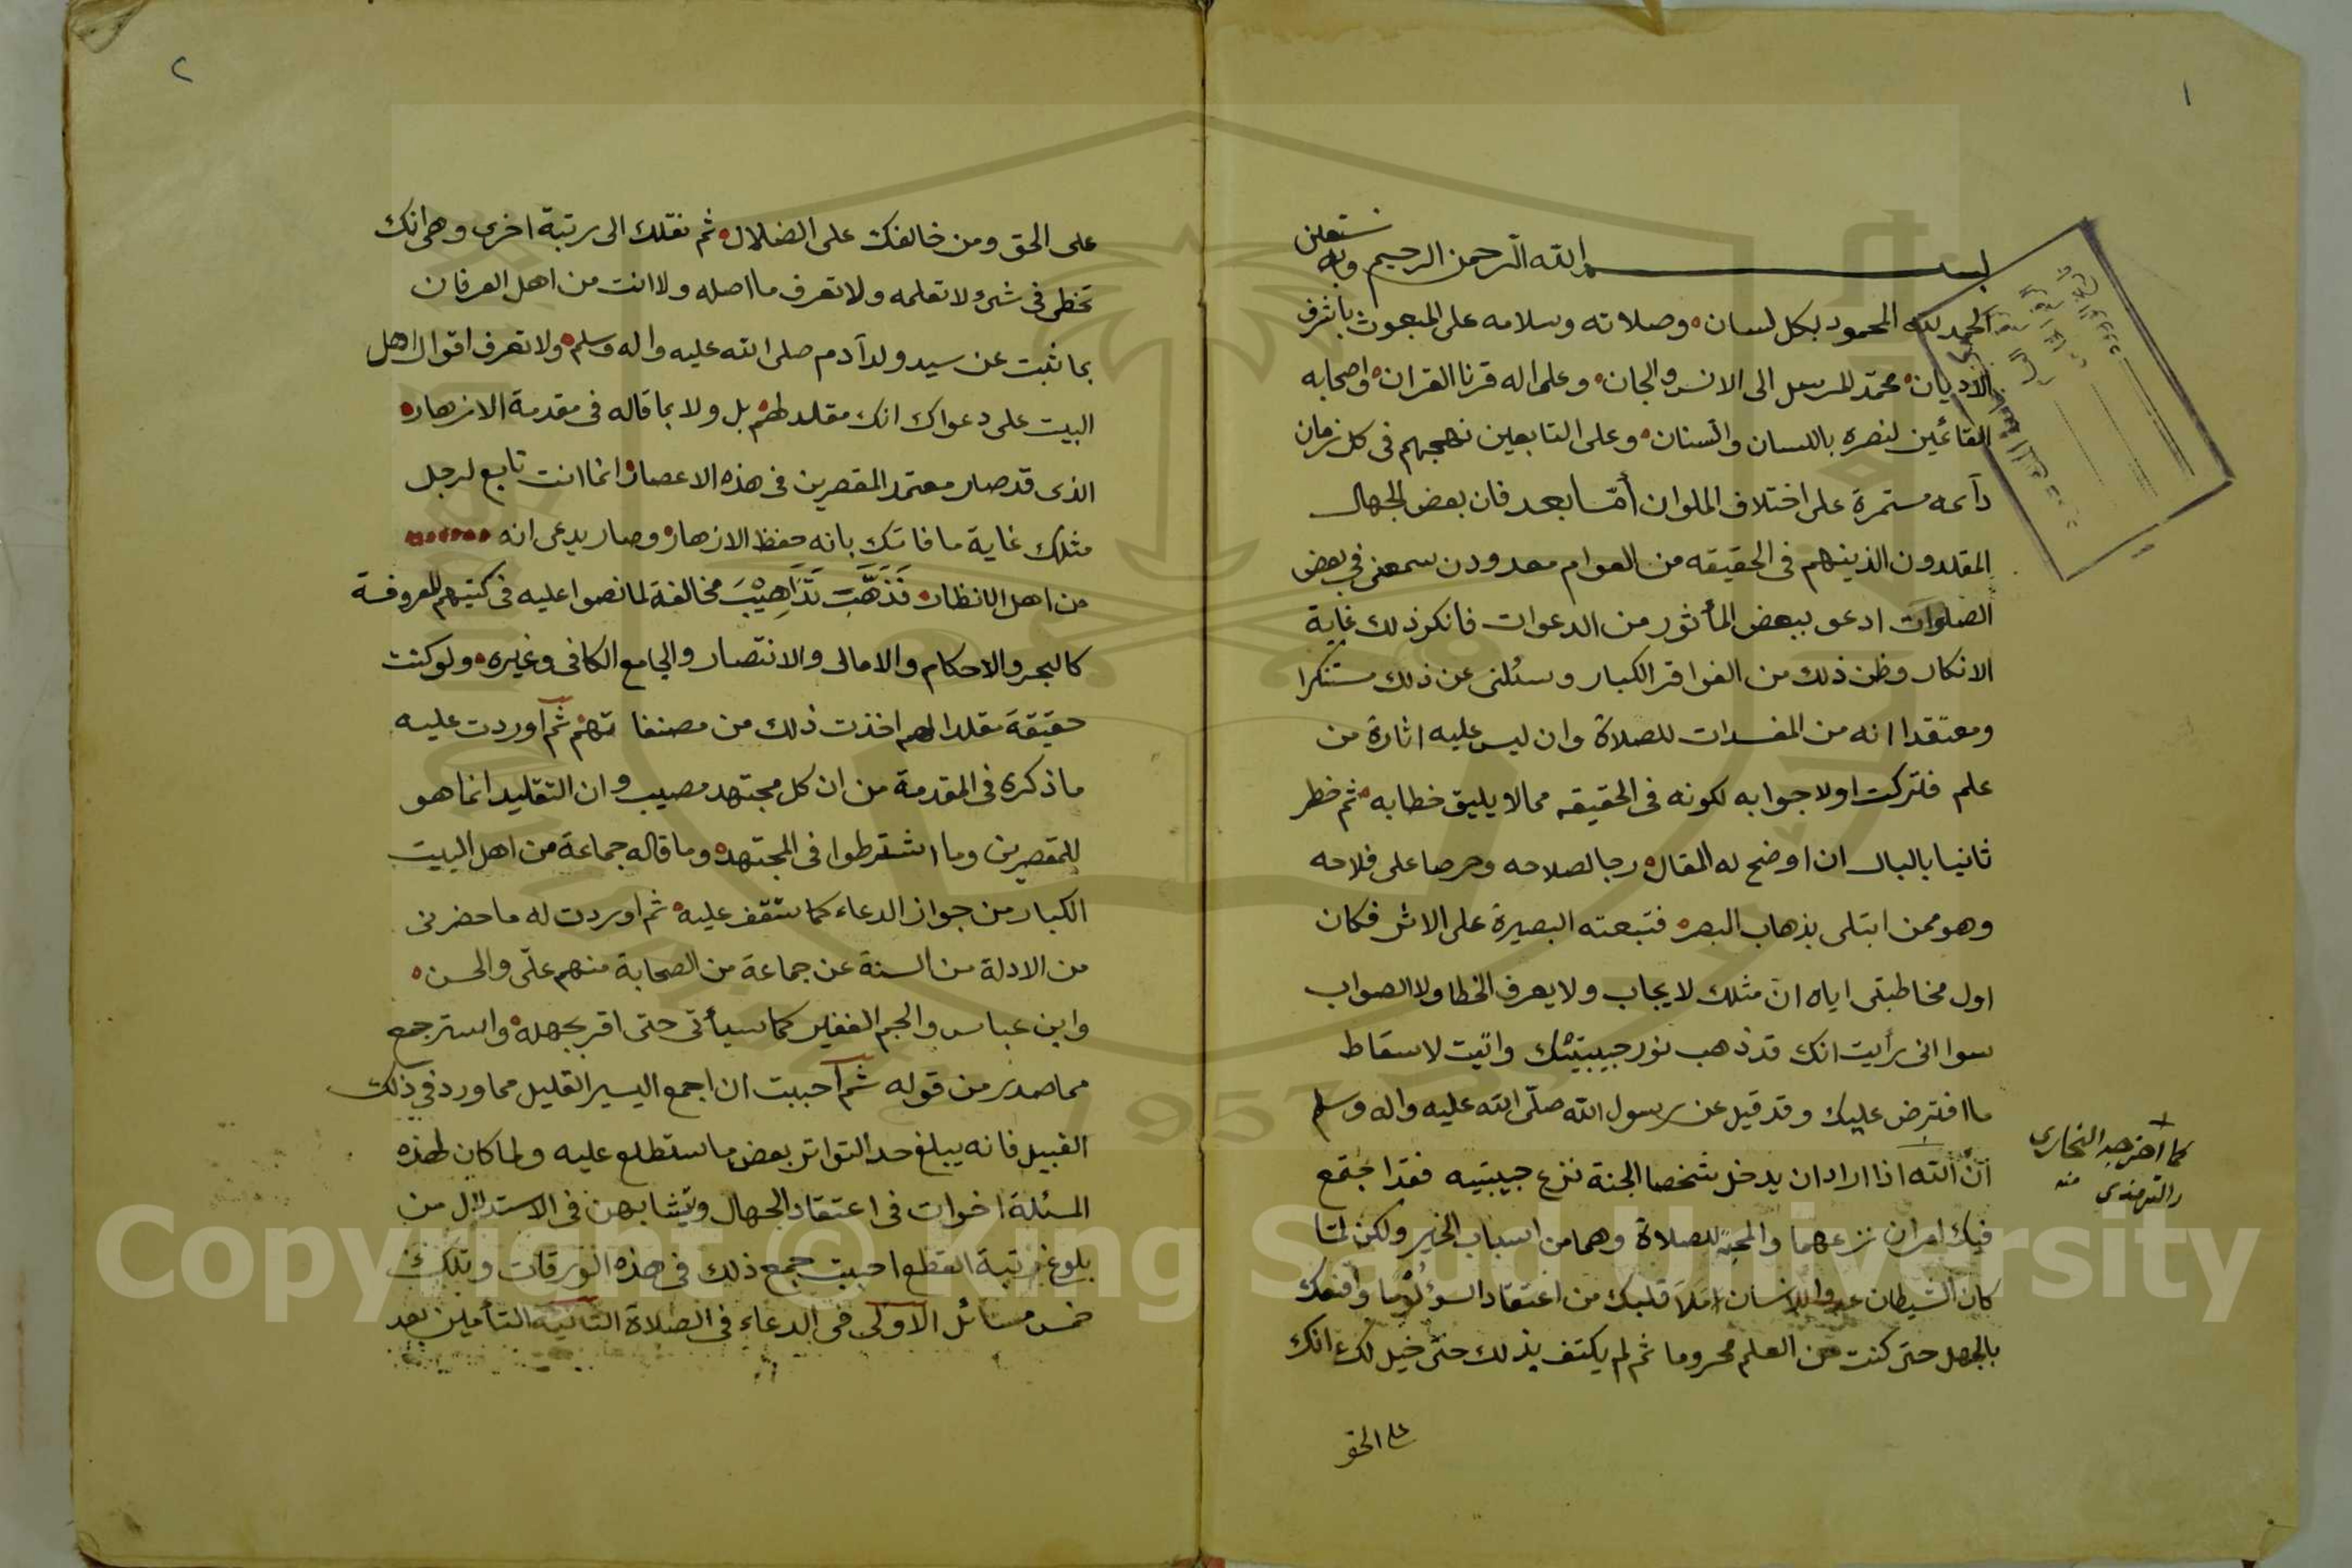 ١
بسم الله الرحمن الرحيم وبه نستعين
الحمد لله المحمود بكل لسان وصلاته وسلامه على المبعوث بأشرف
الاديان محمد المرسل الى الانس والجان وعلى اله قرنا القران واصحابه
القائمين لنصره باللسان والسنان وعلى التابعين نهجهم فى كل زمان
دآئمه مستمرة على اختلاف الملوان أمّا بعد فان بعض الجهال
المقلدون الذينهم فى الحقيقه من العوام معدودن سمعنى في بعض
الصلوات ادعو ببعض المأثور من الدعوات فانكر ذلك غاية
الانكار وظن ذلك من الفواقر الكبار وسئلنى عن ذلك مستنكرا
ومعتقدا انه من المفسدات للصلاة وان ليس عليه اثارة من
علم فتركت اولا جوابه لكونه فى الحقيقه ممالا يليق خطابه ثم خطر
ثانيا بالبال ان اوضح له المقال رجا لصلاحه وحرصا على فلاحه
وهو ممن ابتلى بذهاب البصر فتبعته البصيرة على الاثر فكان
اول مخاطبتى اياه ان مثلك لا يجاب ولا يعرف الخطا ولا الصواب
سوا انى رأيت انك قد ذهب نور حبيبتيك واتيت لاسقاط
ما افترض عليك وقد قيل عن رسول الله صلّى الله عليه واله وسلم
أنّ الله اذا اراد ان يدخل شخصا الجنة نزع حبيبتيه فقد اجتمع
كما اخرجه البخارى
والترمذى منه
فيك امران نزعهما والمجئ للصلاة وهما من اسباب الخير ولكن لمّا
كان الشيطان عدوا للانسان امْلَأَ قلبك من اعتقاد السوء لؤمًا واقنعك
بالجهل حتى كنت من العلم محروما ثم لم يكتف بذلك حتى خيل لك انك
على الحق
٢
على الحق ومن خالفك على الضلال ثم نقلك الى رتبة اخرى وهى انك
تخطى فى شئ لا تعلمه ولا تعرف ما اصله ولا انت من اهل العرفان
بما ثبت عن سيد ولد آدم صلى الله عليه واله وسلم ولا تعرف اقوال اهل
البيت على دعواك انك مقلد لهم بل ولا بما قاله فى مقدمة الازهار
الذى قد صار معتمد المقصرين فى هذه الاعصار انما انت تابع لرجل
مثلك غاية ما فاتك بانه حفظ الازهار وصار يدعى انه
من اهل الانظار فَذَهَّبَ تَذَاهِيْبَ مخالفة لما نصوا عليه فى كتبهم المعروفة
كالبحر والاحكام والامالى والانتصار والجامع الكافى وغيره ولو كنت
حقيقة مقلدا لهم اخذت ذلك من مصنفاتهم ثم اوردت عليه
ما ذكره فى المقدمة من ان كل مجتهد مصيب وان التقليد انما هو
للمقصرين وما اشترطوا فى المجتهد وما قاله جماعة من اهل البيت
الكبار من جواز الدعاء كما ستقف عليه ثم اوردت له ما حضرنى
من الادلة من السنة عن جماعة من الصحابة منهم علىّ والحسن
وابن عباس والجم الغفير كما سيأتى حتى اقر بجهله واسترجع
مما صدر من قوله ثم احببت ان اجمع اليسير القليل مما ورد في ذلك
القبيل فانه يبلغ حد التواتر بعض ما ستطلع عليه ولما كان لهذه
المسئلة اخوات فى اعتقاد الجهال وتشابهن فى الاستدلال من
بلوغ رتبة القطع احببت جمع ذلك فى هذه الورقات وتلك
خمس مسائل الاولى فى الدعاء فى الصلاة الثانية التأمين بعد